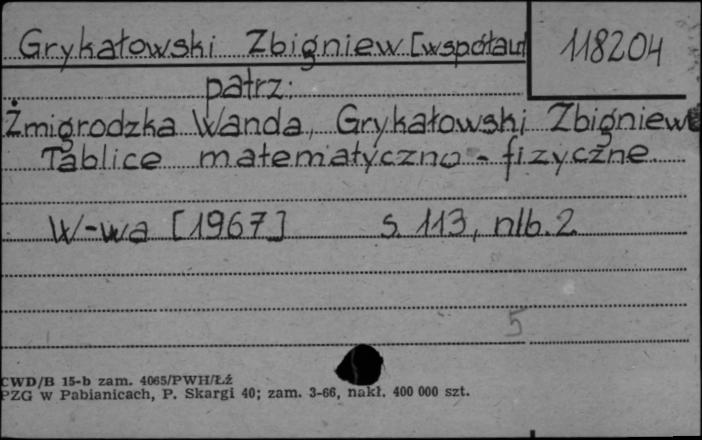 Grykałowski Zbigniew [współaut
118204
patrz:
Żmigrodzka Wanda, Grykałowski Zbigniew
Tablice matematyczno - fizyczne.
W-wa [1967] s. 113, nlb. 2
5
CWD/B 15-b zam. 4065/PWH/Łź
PZG w Pabianicach, P. Skargi 40; zam. 3-66, nakł. 400 000 szt.